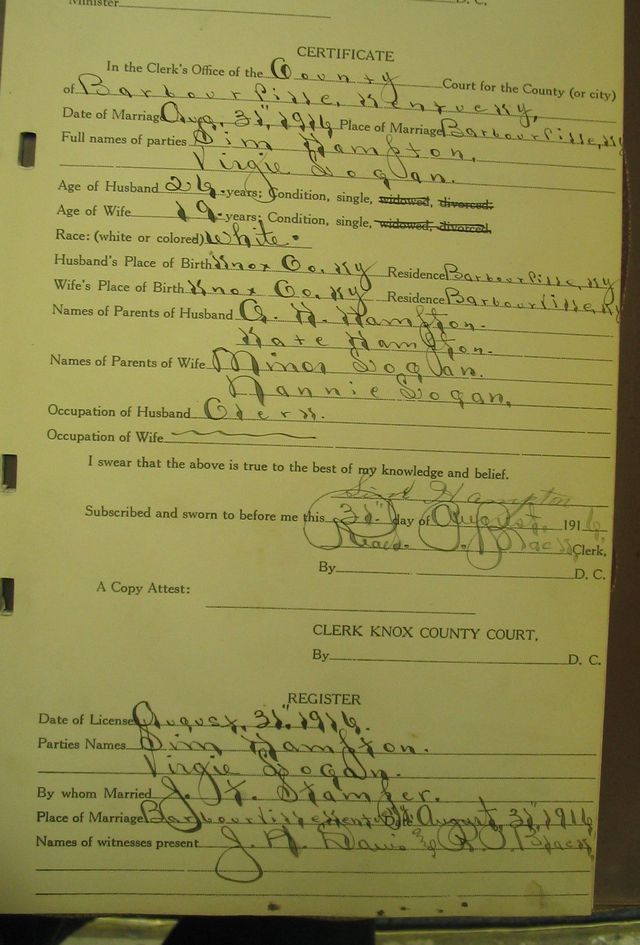 Minister D. C.
CERTIFICATE
In the Clerk's Office of the County Court for the County (or city)
of Barbourville, Kentucky,
Date of Marriage Aug, 31", 1916 Place of Marriage Barbourville, Ky
Full names of parties Sim Hampton.
Virgie Logan.
Age of Husband 26. years; Condition, single, widowed, divorced.
Age of Wife 19. years; Condition, single, widowed, divorced.
Race: (white or colored) White.
Husband's Place of Birth Knox Co. Ky Residence Barbourville, Ky
Wife's Place of Birth Knox Co. Ky Residence Barbourville, Ky
Names of Parents of Husband Hampton.
Kate Hampton.
Names of Parents of Wife Minor Logan.
Nannie Logan.
Occupation of Husband Clerk.
Occupation of Wife
I swear that the above is true to the best of my knowledge and belief.
Sim Hampton
Subscribed and sworn to before me this 31" day of August, 1916,
Black Clerk,
By D. C.
A Copy Attest:
CLERK KNOX COUNTY COURT,
By D. C.
REGISTER
Date of License August, 31". 1916.
Parties Names Sim Hampton.
Virgie Logan.
By whom Married J. Stamper.
Place of Marriage Barbourville, Date August, 31" 1916
Names of witnesses present J. Black